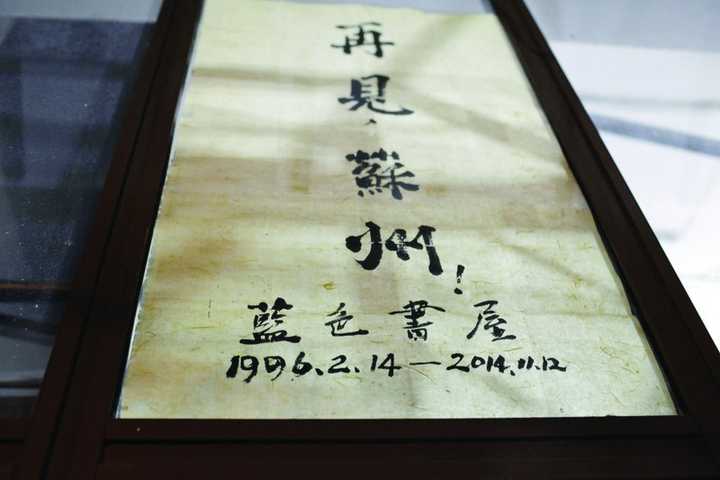 再見，蘇州！
藍色書屋
1996.2.14—2014.11.12